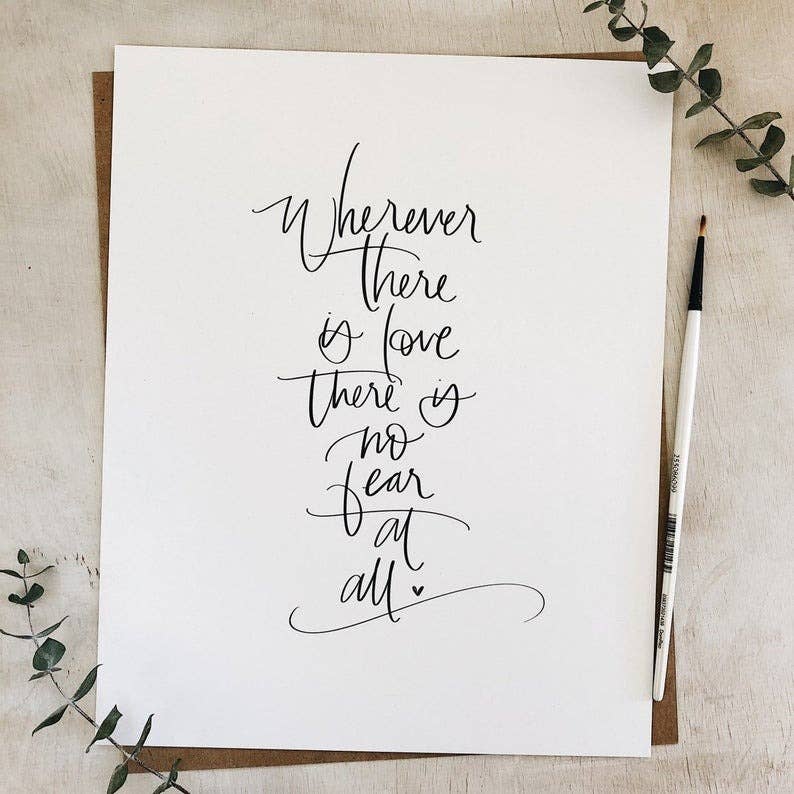 Wherever
there
is love
there is
no
fear
at
all